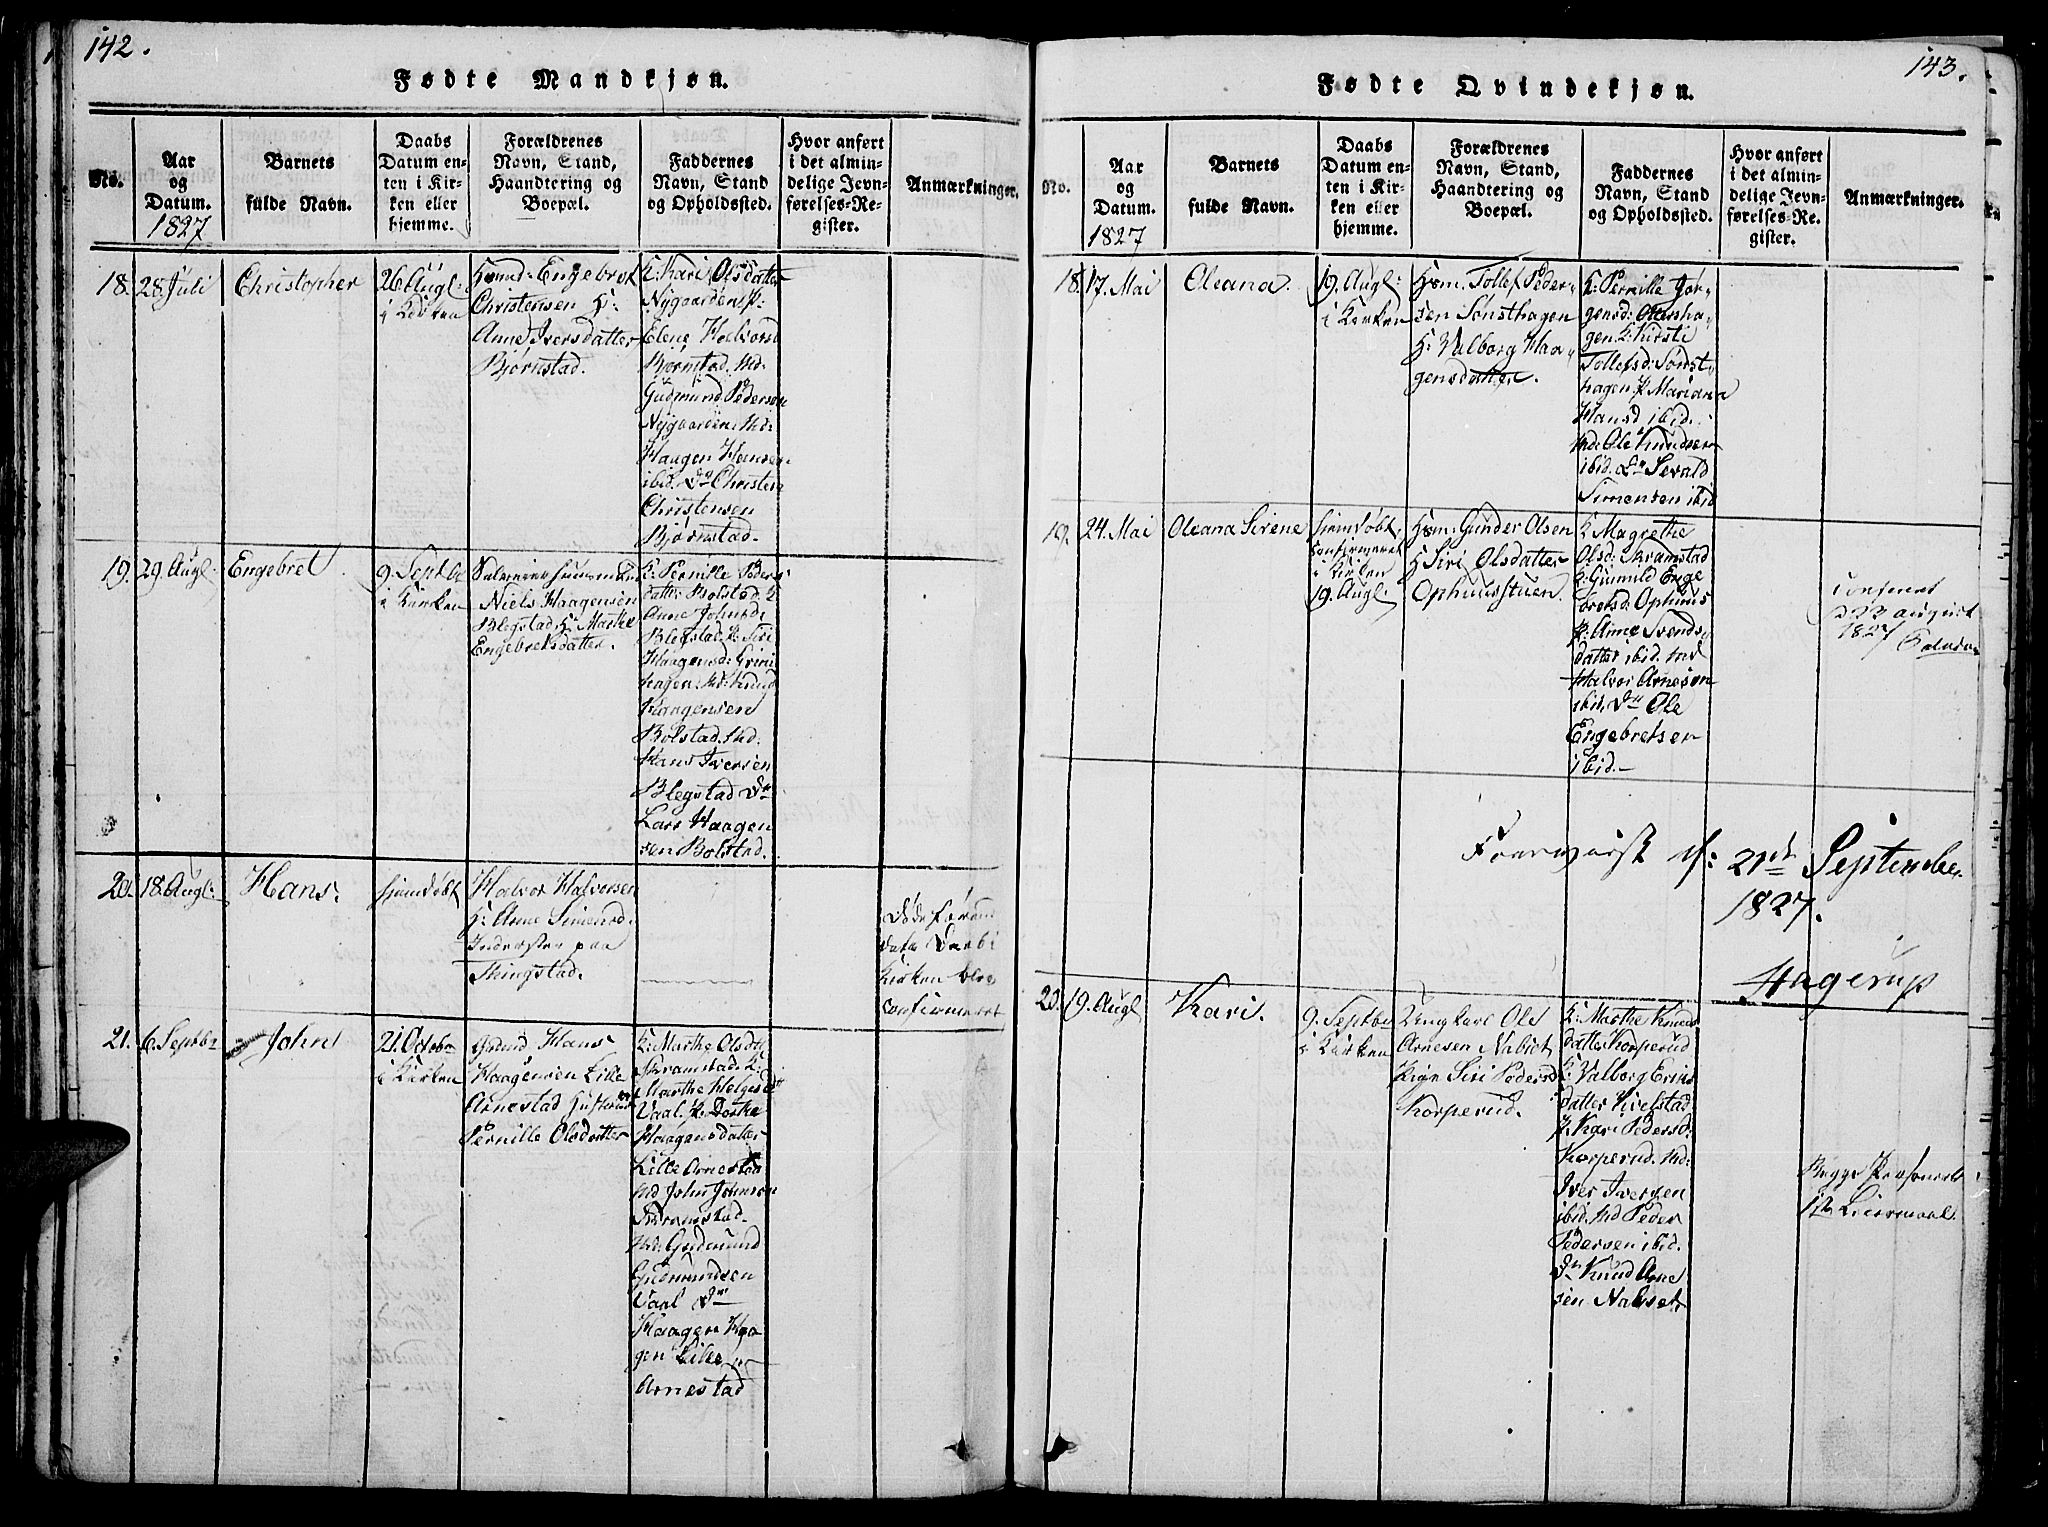 142.
Fødte Mandkjøn.
No.
Aar
og
Datum.
1827
Barnets
fulde Navn.
Daabs
Datum en-
ten i Kir-
ken eller
hjemme.
Forældrenes
Navn, Stand,
Haandtering og
Boepæl.
Faddernes
Navn, Stand
og Opholdssted.
Hvor anført
i det almin-
delige Jevn-
førelses-Re-
gister.
Anmærkninger.
18.
28. Juli
Christopher
26 Augl:
i Kirken
Engebret
Christensen K:
Anne Iversdatter
Bjørnstad.
K: Kari Olsdatter
Nygaarden P:
Elene Halvorsd
Bjørnstad. Md:
Gudmund Pedersen
Nygaarden. Md:
Haagen Hansen
ibid. Christen
Christensen
Bjørnstad.
19.
29. Augl:
Engebret
9. Septbr
i Kirken
Niels Haagensen
Blegstad K: Marthe
Engebretsdatter.
K: Pernille Peders
datter Bolstad. K
Anne Johnsd:
Blegstad. P: Siri
Haagensd: Grim
hagen. Md: Knud
Haagensen
Bolstad. Md:
Hans Iversen
Blegstad
Lars Haagen
sen Bolstad.
20.
18. Augl:
Hans.
hjemdøbt
Halvor Halvorsen
K: Anne Simensd.
Inderster paa
Thingstad.
Døde førend
Kirken blev
confirmeret
21.
6. Septbr
John
21. Octobr
i Kirken
Hans
Haagensen Lille
Arnestad
Pernille Olsdatter
K: Marthe Olsd
Skramstad. K:
Marthe Helgesd
Vaal. P: Dorthe
Haagensdatter
Lille Arnestad
Md John Johnsen
Skramstad.
Md: Gudmund
Gudmundsen
Vaal
Haagen Haa
gen Lille
Arnestad
143.
Fødte Qvindekjøn.
No.
Aar
og
Datum.
1827
Barnets
fulde Navn.
Daabs
Datum en-
ten i Kir-
ken eller
hjemme.
Forældrenes
Navn, Stand,
Haandtering og
Boepæl.
Faddernes
Navn, Stand
og Opholdssted.
Hvor anført
i det almin-
delige Jevn-
førelses-Re-
gister.
Anmærkninger.
18.
17. Mai
Oleana.
19. Augl:
i Kirken
Hsm: Tollef Peder-
sen Sønsthagen
K: Valborg Haa-
gensdatter.
K: Pernille Jør-
gensd:
gen. K: Kirsti
Tollefsd: Sønst-
hagen. P. Mariana
Hansd ibid.
Md: Ole Knudsen
ibid. Sevald
Simensen ibid
19.
24. Mai
Oleana Sirene
hjemdøbt,
confirmeret
i Kirken
19. Augl:
Hsm: Gunder Olsen
K Siri Olsdatter
Ophuusstuen.
K: Magrethe
Olsd: Skramstad
K: Gunnild Enge
bretsd: Ophuus
P: Anne Svends-
datter ibid. Md
Halvor Arnesen
ibid. Ole
Engebretsen
ibid.-
august
1827
21de September
1827.
Hagerup
20.
19. Augl
Kari.
9. Septbr
i Kirken
Ungkarl Ole
Arnesen Nabset
Pige Siri Pedersd
Korperud.
K: Marthe Knuds
datter Korperud
K: Valborg Eriks
datter Kivelstad
P. Kari Pedersd:
Korperud. Md:
Iver Iversen
ibid. Md Peder
Pedersen ibid.
Knud Arne
sen Nabset.
Begges
1te Leiermaal.